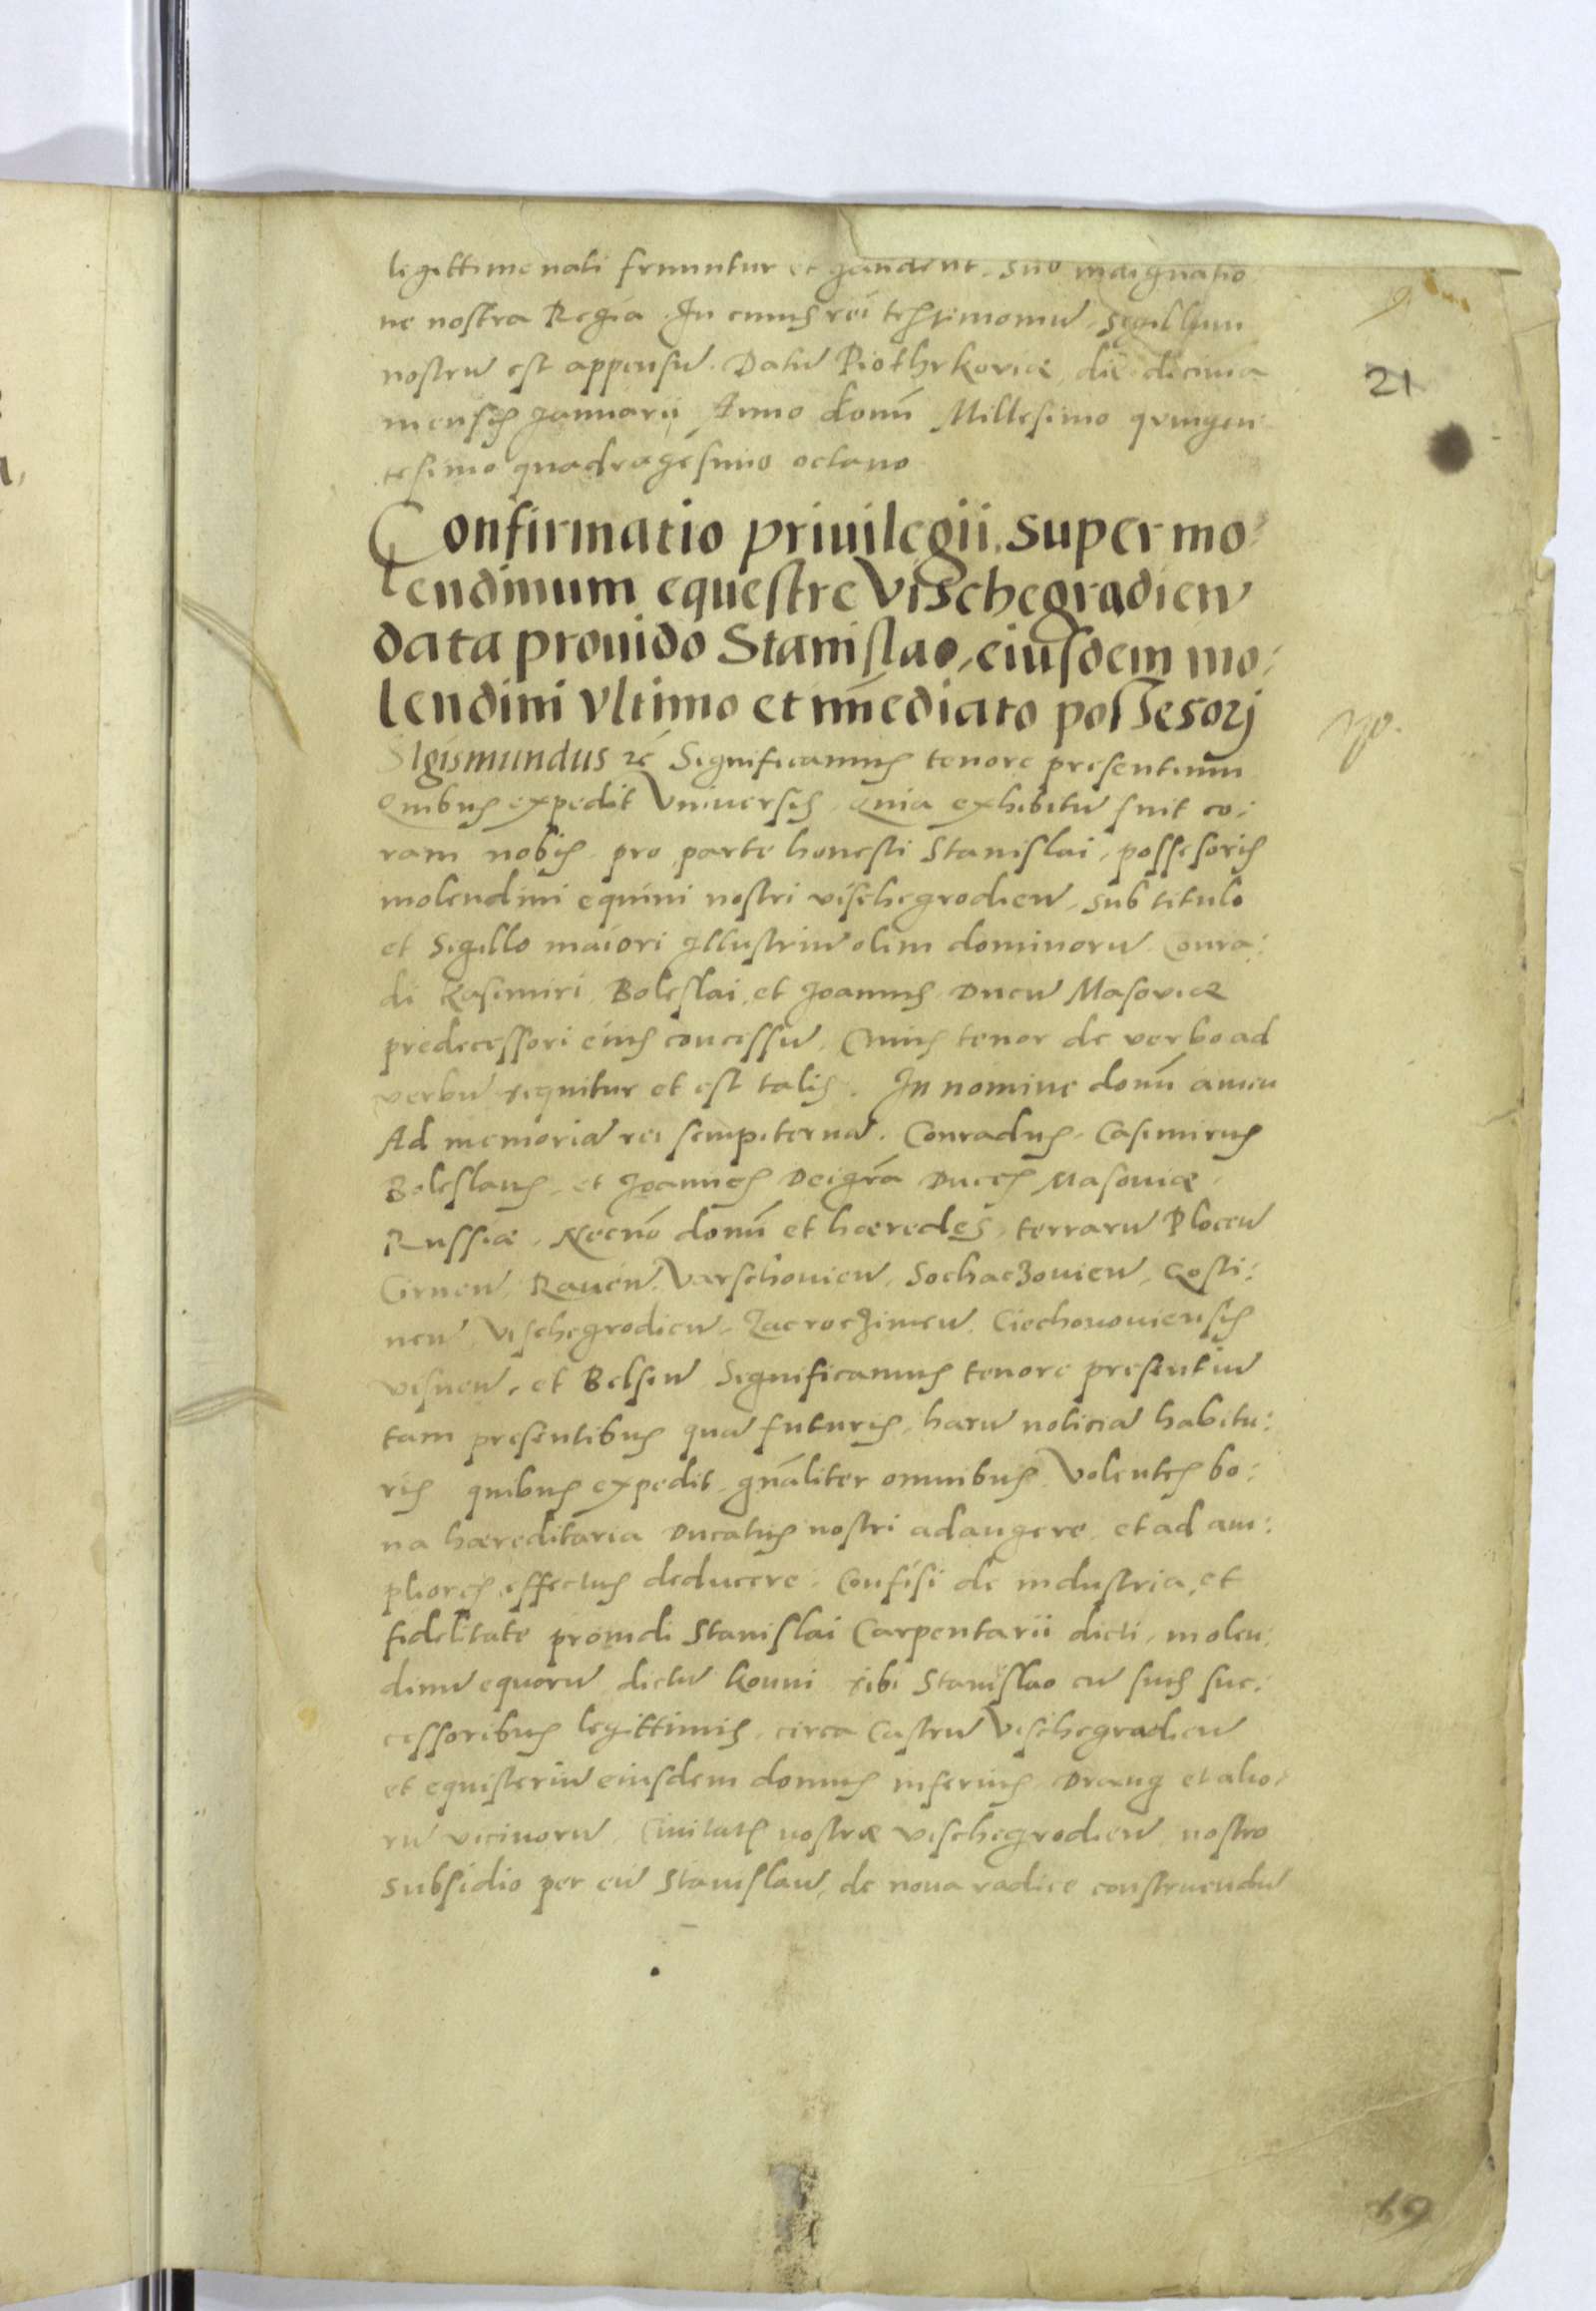 legittime nati fruuntur et gaudent. sub indignatio
ne nostra Regia. In cuius rei testimoniū, sigillum
nostrū est appensū. Datū Piothrkoviæ, die decima
mensis Januarii Anno domī Millesimo quingen
tesimo quadragesimo octauo
Confirmatio priuilegii, super mo:
lendinum equestre Vischegradieñ
data prouido Stanislao, eiusdem mo:
lendini vltimo et īmediato possesorj
Sigismundus &c̄ Significamus tenore presentium
Quibus expedit Vniuersis. Quia exhibitū fuit co:
ram nobis, pro parte honesti Stanislai, possesoris
molendini equini nostri vischegrodieñ, sub titulo
et sigillo maiori Illustriū olim dominorū Conra:
di Kasimiri, Boleslai, et Joannis Ducū Masoviæ
predecessori eius concessū, Cuius tenor de verbo ad
verbū sequitur et est talis. In nomine domī amen
Ad memoriā rei sempiternā. Conradus, Casimirus
Boleslaus, et Joannes Dei grā Duces Masoviæ,
Russiæ, Necnō domī et hæredes, terrarū Ploceñ
Cirneñ, Raueñ, Varschovieñ, Sochaczovieñ, Gosti:
neñ, Vischegrodieñ, Zacroczimeñ, Ciechonoviensis
visneñ, et Belseñ Significamus tenore presentiū
tam presentibus quā futuris, harū noticiā habitu:
ris quibus expedit, gñaliter omnibus. Volentes bo:
na hæreditaria Ducatus nostri adaugere, et ad am:
pliores effectus deducere. Confisi de industria, et
fidelitate prouidi Stanislai Carpentarii dicti, molen:
dinū equorū dictū Konni sibi Stanislao cū suis suc:
cessoribus legittimis, circa Castrū Vischegradieñ
et equisteriū eiusdem domus inferius Drang et alio:
rū vicinorū, Ciuitatis nostræ vischegrodieñ nostro
subsidio per eū Stanislaū, de noua radice construendū
21
19